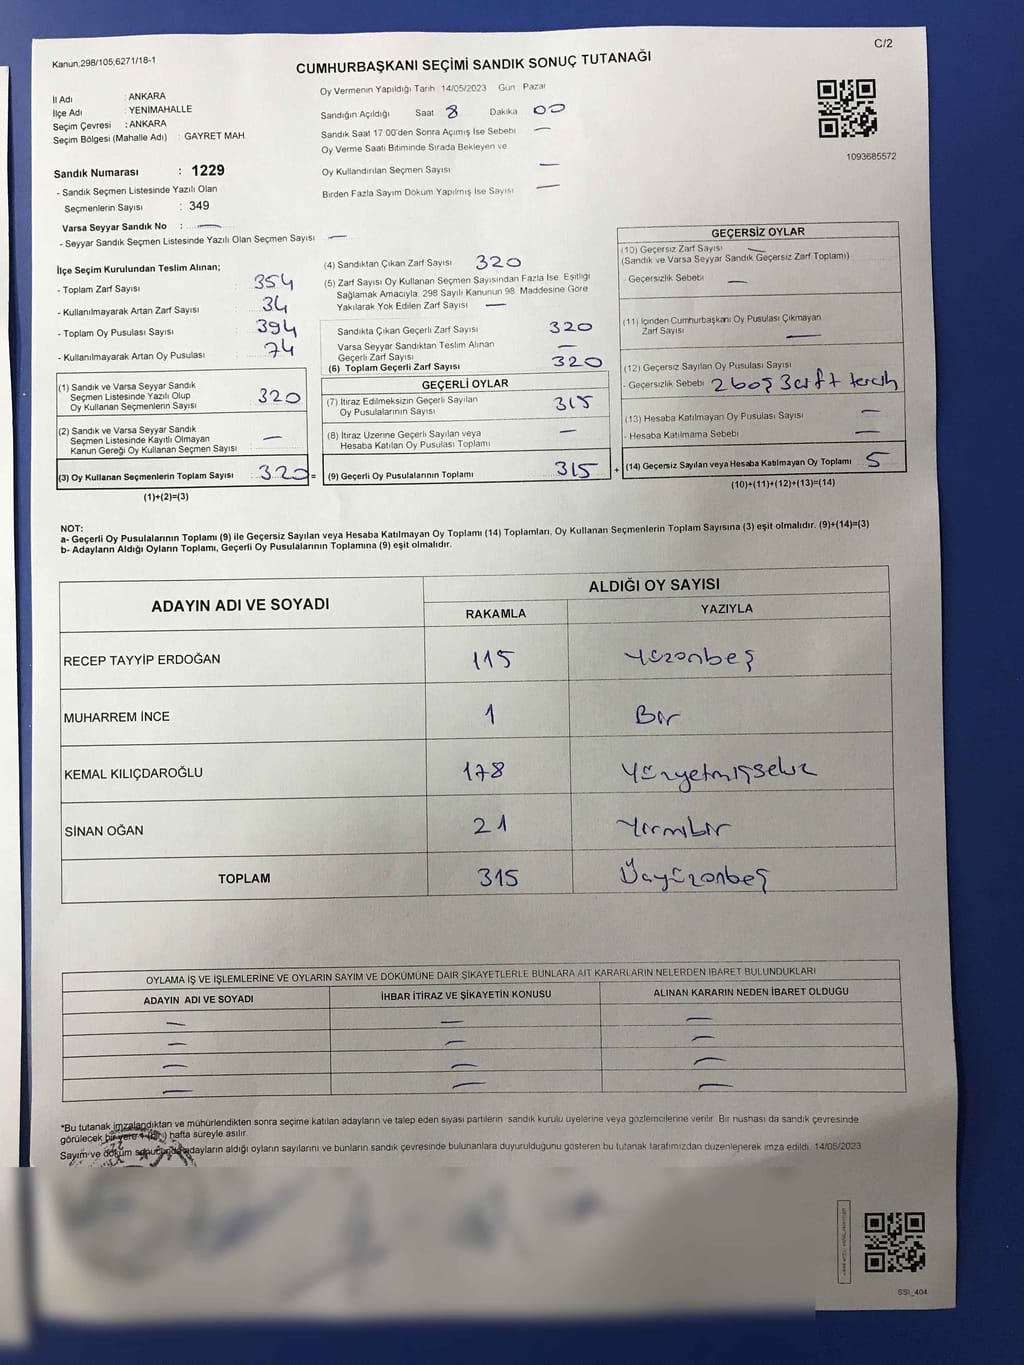 Kanun;298/105,6271/18-1
C/2
CUMHURBAŞKANI SEÇİMİ SANDIK SONUÇ TUTANAĞI
İl Adı : ANKARA
İlçe Adı : YENİMAHALLE
Seçim Çevresi : ANKARA
Seçim Bölgesi (Mahalle Adı) : GAYRET MAH.
Sandık Numarası : 1229
- Sandık Seçmen Listesinde Yazılı Olan
Seçmenlerin Sayısı : 349
Varsa Seyyar Sandık No : —
- Seyyar Sandık Seçmen Listesinde Yazılı Olan Seçmen Sayısı —
Oy Vermenin Yapıldığı Tarih 14/05/2023 Gün Pazar
Sandığın Açıldığı Saat 8 Dakika 00
Sandık Saat 17 00'den Sonra Açılmış İse Sebebi —
Oy Verme Saati Bitiminde Sırada Bekleyen ve
Oy Kullandırılan Seçmen Sayısı —
Birden Fazla Sayım Döküm Yapılmış İse Sayısı —
1093685572
İlçe Seçim Kurulundan Teslim Alınan;
- Toplam Zarf Sayısı : 354
- Kullanılmayarak Artan Zarf Sayısı : 34
- Toplam Oy Pusulası Sayısı : 394
- Kullanılmayarak Artan Oy Pusulası : 74
(1) Sandık ve Varsa Seyyar Sandık
Seçmen Listesinde Yazılı Olup
Oy Kullanan Seçmenlerin Sayısı : 320
(2) Sandık ve Varsa Seyyar Sandık
Seçmen Listesinde Kayıtlı Olmayan
Kanun Gereği Oy Kullanan Seçmen Sayısı : —
(3) Oy Kullanan Seçmenlerin Toplam Sayısı : 320 =
(1)+(2)=(3)
(4) Sandıktan Çıkan Zarf Sayısı 320
(5) Zarf Sayısı Oy Kullanan Seçmen Sayısından Fazla İse Eşitliği
Sağlamak Amacıyla; 298 Sayılı Kanunun 98 Maddesine Göre
Yakılarak Yok Edilen Zarf Sayısı —
Sandıkta Çıkan Geçerli Zarf Sayısı 320
Varsa Seyyar Sandıktan Teslim Alınan
Geçerli Zarf Sayısı —
(6) Toplam Geçerli Zarf Sayısı 320
GEÇERLİ OYLAR
(7) İtiraz Edilmeksizin Geçerli Sayılan
Oy Pusulalarının Sayısı 315
(8) İtiraz Üzerine Geçerli Sayılan veya
Hesaba Katılan Oy Pusulası Toplamı —
(9) Geçerli Oy Pusulalarının Toplamı 315 +
GEÇERSİZ OYLAR
(10) Geçersiz Zarf Sayısı —
(Sandık ve Varsa Seyyar Sandık Geçersiz Zarf Toplamı)
- Geçersizlik Sebebi —
(11) İçinden Cumhurbaşkanı Oy Pusulası Çıkmayan
Zarf Sayısı —
(12) Geçersiz Sayılan Oy Pusulası Sayısı
- Geçersizlik Sebebi 2 boş 3 çift tercih
(13) Hesaba Katılmayan Oy Pusulası Sayısı —
- Hesaba Katılmama Sebebi —
(14) Geçersiz Sayılan veya Hesaba Katılmayan Oy Toplamı 5
(10)+(11)+(12)+(13)=(14)
NOT:
a- Geçerli Oy Pusulalarının Toplamı (9) ile Geçersiz Sayılan veya Hesaba Katılmayan Oy Toplamı (14) Toplamları, Oy Kullanan Seçmenlerin Toplam Sayısına (3) eşit olmalıdır. (9)+(14)=(3)
b- Adayların Aldığı Oyların Toplamı, Geçerli Oy Pusulalarının Toplamına (9) eşit olmalıdır.
ADAYIN ADI VE SOYADI ALDIĞI OY SAYISI
RAKAMLA YAZIYLA
RECEP TAYYİP ERDOĞAN 115 Yüzonbeş
MUHARREM İNCE 1 Bir
KEMAL KILIÇDAROĞLU 178 Yüzyetmişsekiz
SİNAN OĞAN 21 Yirmibir
TOPLAM 315 Üçyüzonbeş
OYLAMA İŞ VE İŞLEMLERİNE VE OYLARIN SAYIM VE DÖKÜMÜNE DAİR ŞİKAYETLERLE BUNLARA AİT KARARLARIN NELERDEN İBARET BULUNDUKLARI
ADAYIN ADI VE SOYADI İHBAR İTİRAZ VE ŞİKAYETİN KONUSU ALINAN KARARIN NEDEN İBARET OLDUĞU
— — —
— — —
— — —
— — —
*Bu tutanak imzalandıktan ve mühürlendikten sonra seçime katılan adayların ve talep eden siyasi partilerin sandık kurulu üyelerine veya gözlemcilerine verilir. Bir nüshası da sandık çevresinde
görülecek bir yere 1 hafta süreyle asılır.
Sayım ve döküm sonucunda adayların aldığı oyların sayılarını ve bunların sandık çevresinde bulunanlara duyurulduğunu gösteren bu tutanak tarafımızdan düzenlenerek imza edildi. 14/05/2023
SSI_404